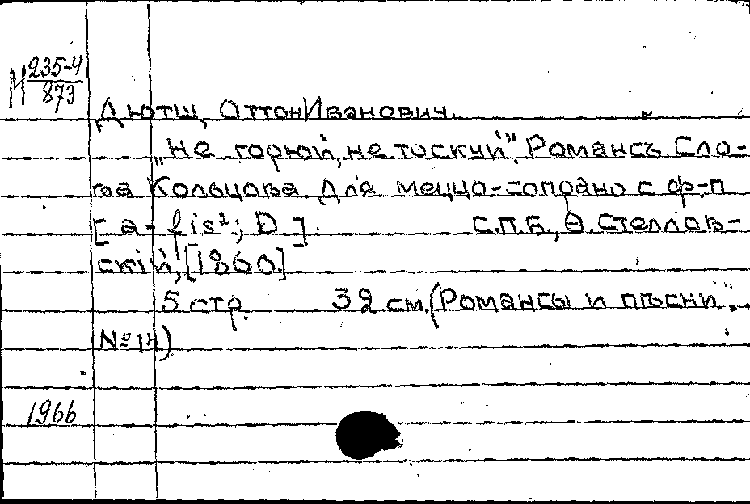 М 235-4
873
Дютш, Оттон Иванович.
„Не горюй, не тоскуй". Романсъ. Сло-
ва Кольцова. Для меццо-сопрано с ф-п
[a-fis²; D]. С.П.Б., Ѳ. Стеллов-
скій, [1860.]
5 стр. 32 см. (Романсы и пѣсни".
№ 14)
1966